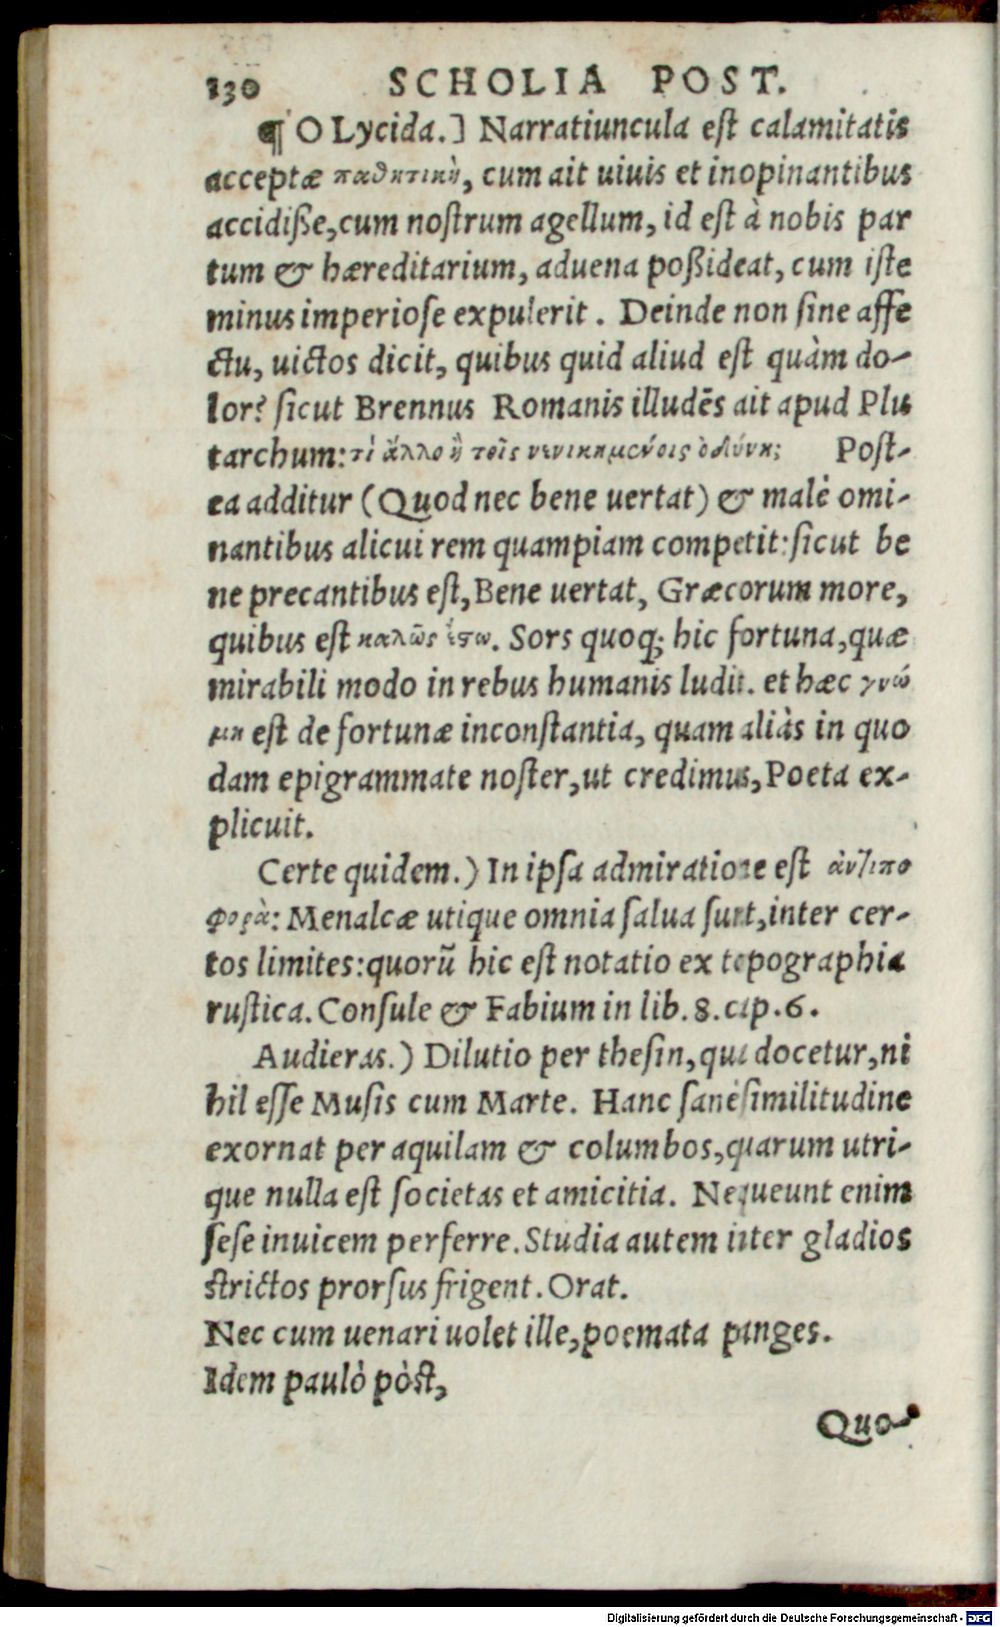 130 SCHOLIA POST.
¶ O Lycida.] Narratiuncula est calamitatis
acceptæ παθητικὴ, cum ait uiuis et inopinantibus
accidiße, cum nostrum agellum, id est à nobis par
tum & hæreditarium, aduena poßideat, cum iste
minus imperiose expulerit. Deinde non sine affe
ctu, uictos dicit, quibus quid aliud est quàm do-
lor? sicut Brennus Romanis illudẽs ait apud Plu
tarchum: τί ἄλλο ἢ τοῖς νενικημένοις ὀδύνη; Post-
ea additur (Quod nec bene uertat) & malè omi-
nantibus alicui rem quampiam competit: sicut be
ne precantibus est, Bene uertat, Græcorum more,
quibus est καλῶς ἔστω. Sors quoq; hic fortuna, quæ
mirabili modo in rebus humanis ludit. et hæc γνώ
μη est de fortunæ inconstantia, quam aliàs in quo
dam epigrammate noster, ut credimus, Poeta ex-
plicuit.
Certe quidem.) In ipsa admiratione est ἀνθυπο
φορὰ: Menalcæ utique omnia salua sunt, inter cer-
tos limites: quorũ hic est notatio ex topographia
rustica. Consule & Fabium in lib. 8. cap. 6.
Audieras.) Dilutio per thesin, qua docetur, ni
hil esse Musis cum Marte. Hanc sanè similitudine
exornat per aquilam & columbos, quarum utri-
que nulla est societas et amicitia. Nequeunt enim
sese inuicem perferre. Studia autem inter gladios
strictos prorsus frigent. Orat.
Nec cum uenari uolet ille, poemata panges.
Idem paulò pòst,
Quo-
Digitalisierung gefördert durch die Deutsche Forschungsgemeinschaft - DFG